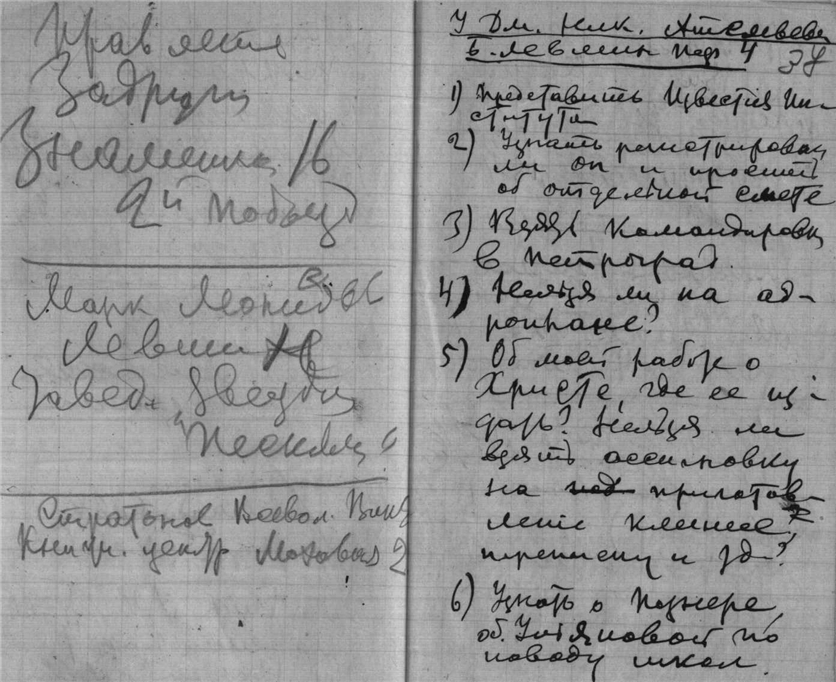 Правление
Задруги
Знаменка 16
2й подъезд
Марк
Левин
Завед. Звездой
Стратонов Всевол. Викт
Книжн. центр Моховая 2
У Дм. Ник.
Б. Левшин пер 4
38
1) Представить Известия Ин-
ститута
2) Узнать регистрирован
ли он и просить
об отдельной смете
3) Взять командировку
в Петроград.
4) Нельзя ли на аэ-
роплане?
5) Об моей работе о
Христе, где ее из-
дать? Нельзя ли
взять ассигновку
на приготов-
ление клише,
переписку и др?
6) Узнать о Познере,
об. Ульяновой по
поводу школ.